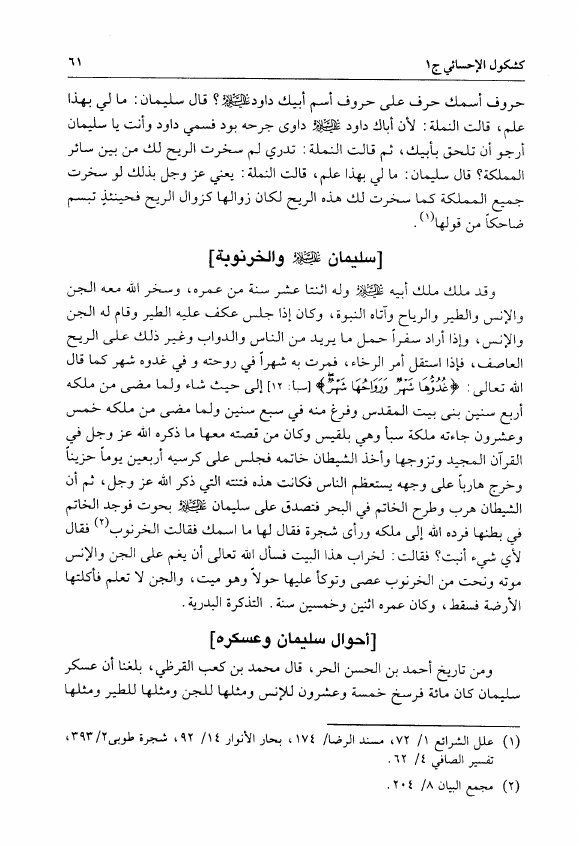 كشكول الإحسائي ج١ ٦١
حروف أسمك حرف على حروف أسم أبيك داود عليه السلام؟ قال سليمان: ما لي بهذا
علم، قالت النملة: لأن أباك داود عليه السلام داوى جرحه بود فسمي داود وأنت يا سليمان
أرجو أن تلحق بأبيك، ثم قالت النملة: تدري لم سخرت الريح لك من بين سائر
المملكة؟ قال سليمان: ما لي بهذا علم، قالت النملة: يعني عز وجل بذلك لو سخرت
جميع المملكة كما سخرت لك هذه الريح لكان زوالها كزوال الريح فحينئذٍ تبسم
ضاحكاً من قولها(١).
[سليمان عليه السلام والخرنوبة]
وقد ملك ملك أبيه عليه السلام وله اثنتا عشر سنة من عمره، وسخر الله معه الجن
والإنس والطير والرياح وآتاه النبوة، وكان إذا جلس عكف عليه الطير وقام له الجن
والإنس، وإذا أراد سفراً حمل ما يريد من الناس والدواب وغير ذلك على الريح
العاصف، فإذا استقل أمر الرخاء، فمرت به شهراً في روحته و في غدوه شهر كما قال
الله تعالى: ﴿غُدُوُّهَا شَهْرٌ وَرَوَاحُهَا شَهْرٌ﴾ [سبا: ١٢] إلى حيث شاء ولما مضى من ملكه
أربع سنين بنى بيت المقدس وفرغ منه في سبع سنين ولما مضى من ملكه خمس
وعشرون جاءته ملكة سبأ وهي بلقيس وكان من قصته معها ما ذكره الله عز وجل في
القرآن المجيد وتزوجها وأخذ الشيطان خاتمه فجلس على كرسيه أربعين يوماً حزيناً
وخرج هارباً على وجهه يستعظم الناس فكانت هذه فتنته التي ذكر الله عز وجل، ثم أن
الشيطان هرب وطرح الخاتم في البحر فتصدق على سليمان عليه السلام بحوت فوجد الخاتم
في بطنها فرده الله إلى ملكه ورأى شجرة فقال لها ما اسمك فقالت الخرنوب(٢) فقال
لأي شيء أنبت؟ فقالت: لخراب هذا البيت فسأل الله تعالى أن يغم على الجن والإنس
موته ونحت من الخرنوب عصى وتوكأ عليها حولاً وهو ميت، والجن لا تعلم فأكلتها
الأرضة فسقط، وكان عمره اثنين وخمسين سنة. التذكرة البدرية.
[أحوال سليمان وعسكره]
ومن تاريخ أحمد بن الحسن الحر، قال محمد بن كعب القرظي، بلغنا أن عسكر
سليمان كان مائة فرسخ خمسة وعشرون للإنس ومثلها للجن ومثلها للطير ومثلها
(١) علل الشرائع ١/ ٧٢، مسند الرضا/ ١٧٤، بحار الأنوار ١٤/ ٩٢، شجرة طوبى٢/ ٣٩٣،
تفسير الصافي ٤/ ٦٢.
(٢) مجمع البيان ٨/ ٢٠٤.